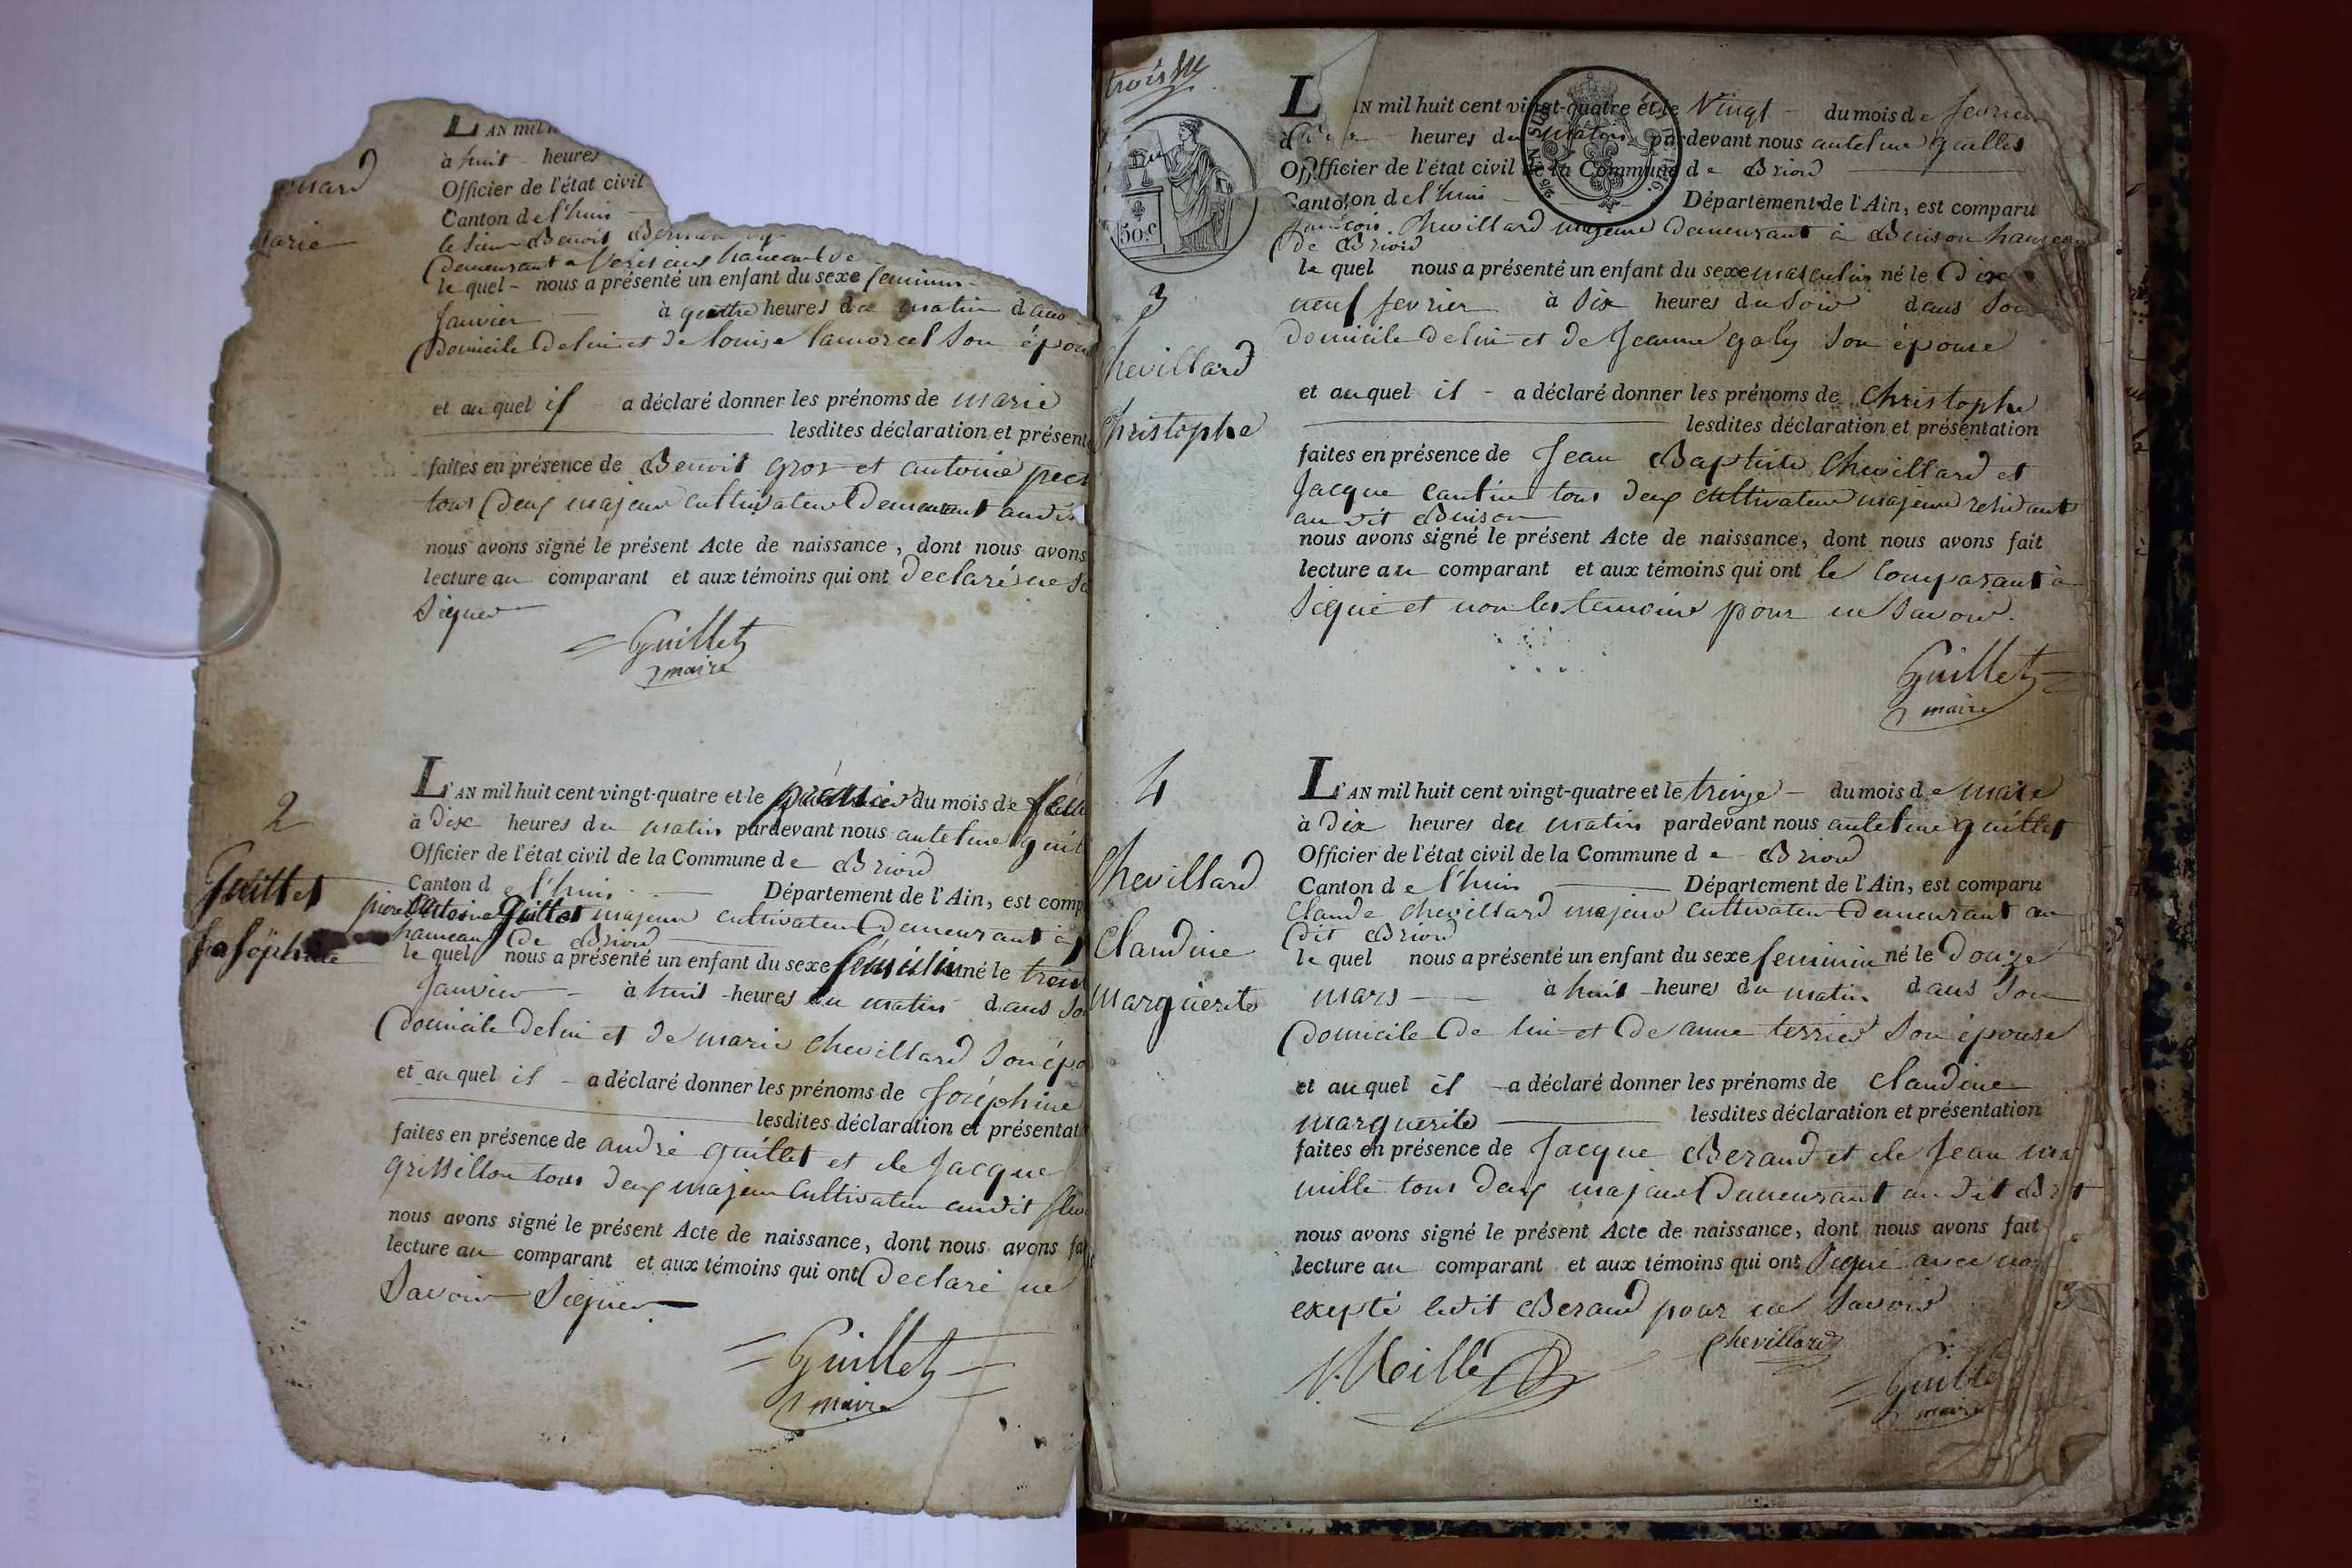 L'AN mil
à huit heures
Officier de l'état civil
Canton de l'huis
le sieur Benoit
demeurant a hameau de
le quel nous a présenté un enfant du sexe feminin
Janvier à quatre heures du matin dans
domicile de lui et de louise son épou
et au quel il a déclaré donner les prénoms de marie
lesdites déclaration et présent
faites en présence de Benoit gros et antoine
tous deux majeur cultivateur demeurant audit
nous avons signé le présent Acte de naissance, dont nous avons
lecture au comparant et aux témoins qui ont declaré ne
signer
Guillet
maire
2
Guillet
Josephine
L'AN mil huit cent vingt-quatre et le premier du mois de
à dix heures du matin pardevant nous antelme
Officier de l'état civil de la Commune de Briord
Canton de l'huis Département de l'Ain, est comp
pierre antoine Guillet majeur cultivateur demeurant à
hameau de Briord
le quel nous a présenté un enfant du sexe féminin né le
Janvier à huit heures du matin dans
domicile de lui et de marie chevillard son épo
et au quel il a déclaré donner les prénoms de Joséphine
lesdites déclaration et présentat
faites en présence de andré guillet et de Jacque
grissillon tous deux majeur cultivateur audit
nous avons signé le présent Acte de naissance, dont nous avons fai
lecture au comparant et aux témoins qui ont declaré ne
Savoir Signer
Guillet
maire
trois
50.c
3
Chevillard
Christophe
L'AN mil huit cent vingt-quatre et le Vingt du mois de fevrier
heures du matin pardevant nous antelme guillet
Officier de l'état civil de la Commune de Briord
Canton de l'huis Département de l'Ain, est comparu
françois Chevillard majeur demeurant à Buison hameau
de Briord
le quel nous a présenté un enfant du sexe masculin né le Dix
neuf fevrier à Six heures du Soir dans Son
domicile de lui et de Jeanne galy Son épouse
et au quel il a déclaré donner les prénoms de Christophe
lesdites déclaration et présentation
faites en présence de Jean Baptiste Chevillard et
Jacque cantin tous deux cultivateur majeur residant
au dit Buison
nous avons signé le présent Acte de naissance, dont nous avons fait
lecture au comparant et aux témoins qui ont le comparant à
Signé et non les temoins pour ne Savoir.
Guillet
maire
4
Chevillard
Claudine
marguerite
L'AN mil huit cent vingt-quatre et le treize du mois de mars
à Dix heures du matin pardevant nous antelme guillet
Officier de l'état civil de la Commune de Briord
Canton de l'huis Département de l'Ain, est comparu
claude chevillard majeur cultivateur demeurant au
dit Briord
le quel nous a présenté un enfant du sexe feminin né le Douze
mars à huit heures du matin dans Son
domicile de lui et de anne terrier Son épouse
et au quel il a déclaré donner les prénoms de claudine
marguerite lesdites déclaration et présentation
faites en présence de Jacque Beraud et de Jean
mille tous deux majeur demeurant au dit
nous avons signé le présent Acte de naissance, dont nous avons fait
lecture au comparant et aux témoins qui ont signé avec
excepté ledit Beraud pour ne Savoir
chevillard
Guillet
maire